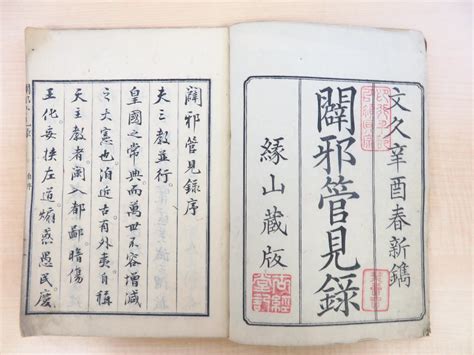 文久辛酉春新鐫
闢邪管見錄
緣山藏版
闢邪管見錄序
夫三教並行
皇國之常典而萬世不容增減
之大憲也泊近古有外夷自稱
天主教者闌入都鄙暗傷
王化妄挾左道煽惑愚民慶